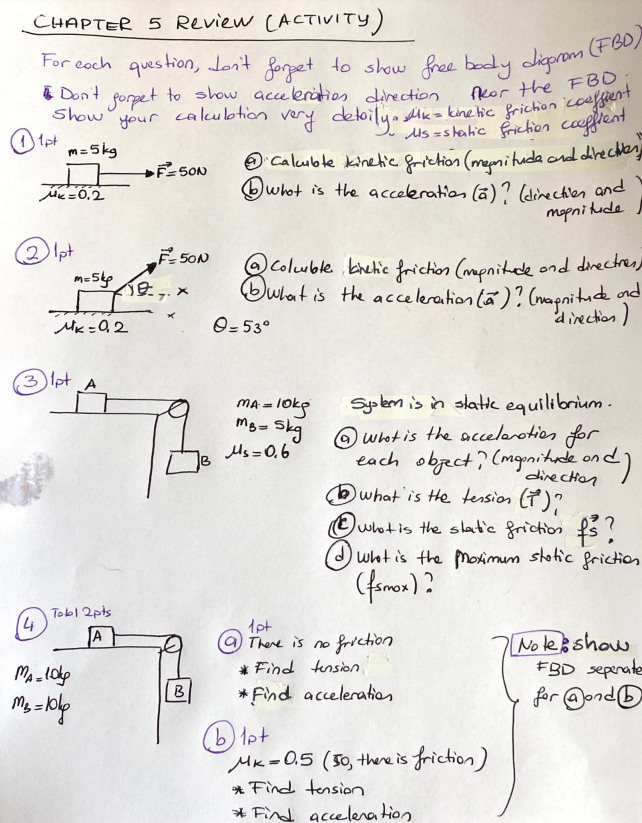 CHAPTER 5 Review (ACTIVITY)
For each question, don't forget to show free body diagram (FBD)
* Don't forget to show acceleration direction near the FBD.
Show your calculation very detaily. μk = kinetic friction coeffient
μs = static friction coeffient
① 1pt
m=5kg
F=50N
μk=0.2
ⓐ Calculate kinetic friction (magnitude and direction)
ⓑ What is the acceleration (a)? (direction and
magnitude)
② 1pt
F=50N
m=5kg
θ
x
x
μk=0.2
θ=53°
ⓐ Calculate kinetic friction (magnitude and direction)
ⓑ What is the acceleration (a)? (magnitude and
direction)
③ 1pt
A
B
mA=10kg
mB=5kg
μs=0.6
System is in static equilibrium.
ⓐ What is the acceleration for
each object? (magnitude and
direction)
ⓑ What is the tension (T)?
ⓒ What is the static friction fs?
ⓓ What is the Maximum static friction
(fsmax)?
④ Total 2pts
A
B
MA=10kg
MB=10kg
1pt
ⓐ There is no friction
* Find tension
* Find acceleration
ⓑ 1pt
μk=0.5 (so, there is friction)
* Find tension
* Find acceleration
Note: show
FBD seperate
for ⓐ and ⓑ